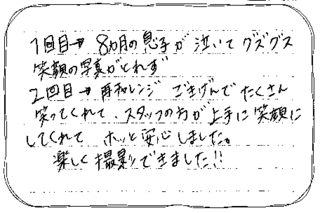 1回目→ 8ヵ月の息子が泣いてグズグズ
笑顔の写真がとれず
2回目→ 再チャレンジ ごきげんでたくさん
笑ってくれて、スタッフの方が上手に笑顔に
してくれて ホッと安心しました。
楽しく撮影できました!!